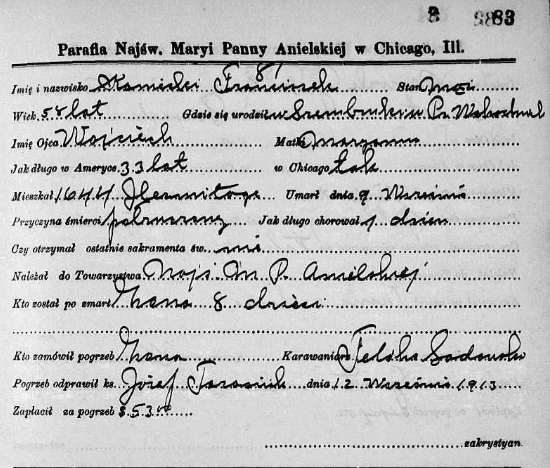 3 3883
Parafia Najśw. Maryi Panny Anielskiej w Chicago, Ill.
Imię i nazwisko Stomiński Franciszek Stan
Wiek 54 lat Gdzie się urodził w Pr. Wschodnich
Imię Ojca Wojciech Matki Maryanna
Jak długo w Ameryce 33 lat w Chicago tak
Mieszkał 1644 Hermitage Umarł dnia 9 Wrześnis
Przyczyna śmierci Jak długo chorował 1 dzien
Czy otrzymał ostatnie sakramenta św. nie
Należał do Towarzystwa Najs. M. P. Anielskiej
Kto został po zmarł Żona 8 dzieci
Kto zamówił pogrzeb Żona Karawaniarz Feliks Sadowski
Pogrzeb odprawił ks. Józef Tarasiuk dnia 12 Wrześnis 1913
Zapłacił za pogrzeb $53
zakrystyan.